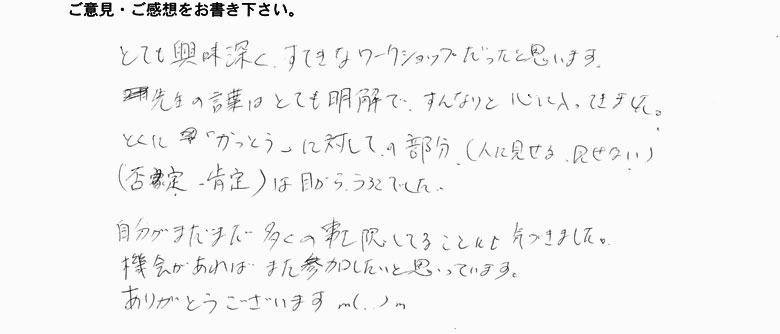 ご意見・ご感想をお書き下さい。
とても興味深く、すてきなワークショップだったと思います。
先生の言葉はとても明解で、すんなりと心に入ってきました。
とくに「かっとう」に対しての部分、(人に見せる、見せない)
(否定、肯定)は目から、うろこでした。
自分がまだまだ多くの事を隠してることにも気づきました。
機会があればまた参加したいと思っています。
ありがとうございます m(..)m